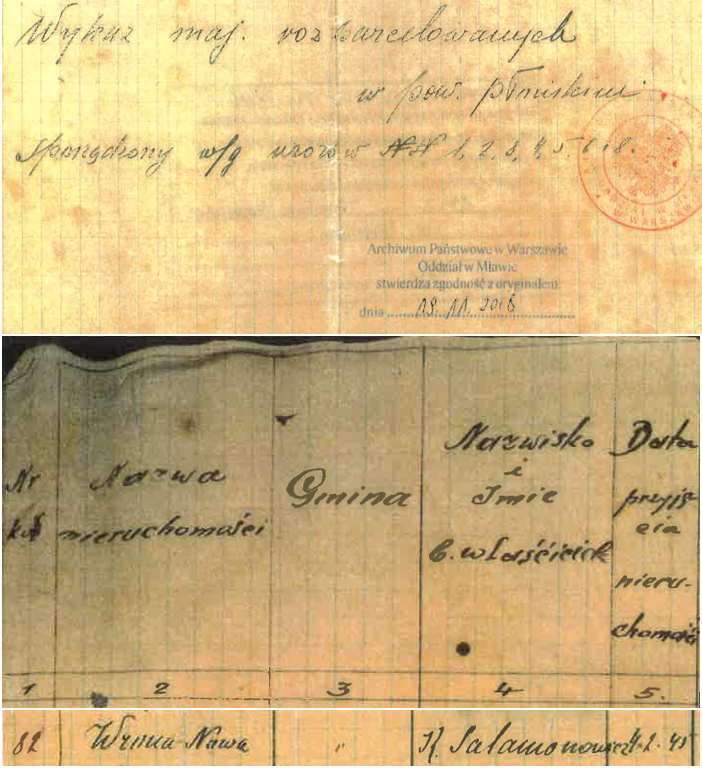 Wykaz maj. rozparcelowanych
w pow. płońskim
sporządzony w/g wzorów NN 1, 2, 3, 4, 5. 6 i 8.
W WARSZAWIE
Archiwum Państwowe w Warszawie
Oddział w Mławie
stwierdza zgodność z oryginałem
dnia 19. 11. 2018
Nr
Nazwa
nieruchomości
Gmina
Nazwisko
i
Imie
b. właściciela
Data
przyję
cia
nieru-
chomości
1 2 3 4 5.
82 Wrona Nowa " K. Salamonowicz 4.2.45